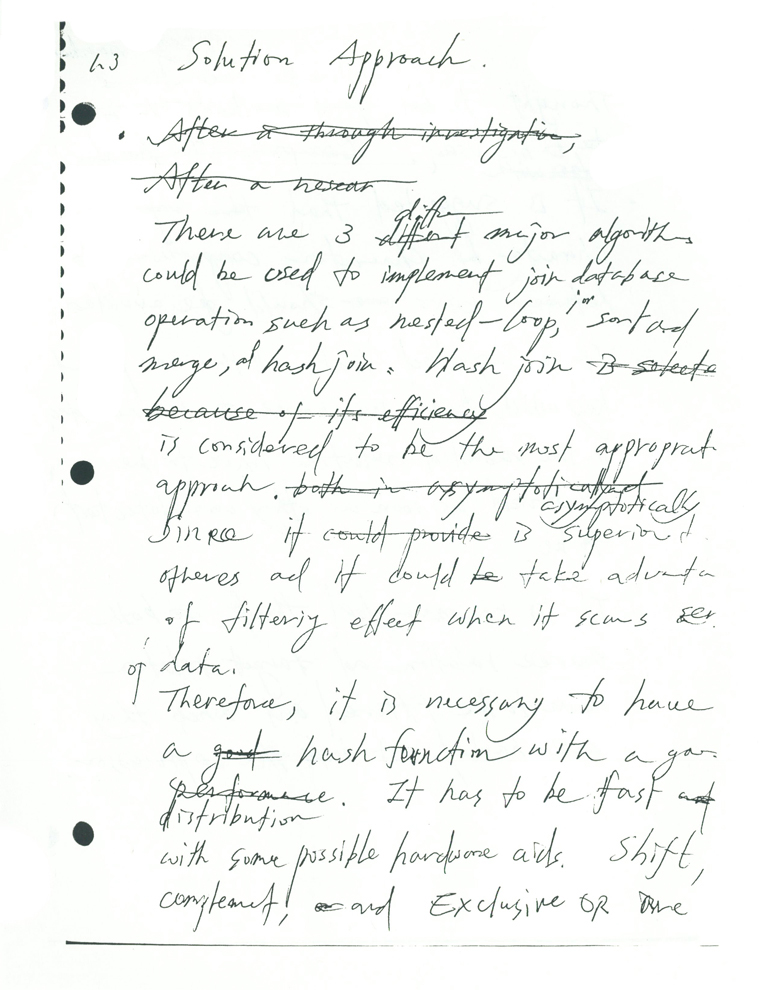 1.3 Solution Approach.
After a through investigation,
After a resear
diffe
There are 3 different major algorithms
could be used to implement join database
operation such as nested-loop, or sort ad
merge, ad hash join. Hash join is selecte
because of its efficiency
is considered to be the most appropriat
approach. both in asymptotically ad
asymptotically
Since it could provide is superior t
otheres ad it could be take advanta
of filterig effect when it scans
of data.
Therefore, it is necessary to have
a good hash function with a goo
performance. It has to be fast and
distribution
with some possible hardware aids. Shift,
complement, and Exclusive OR are